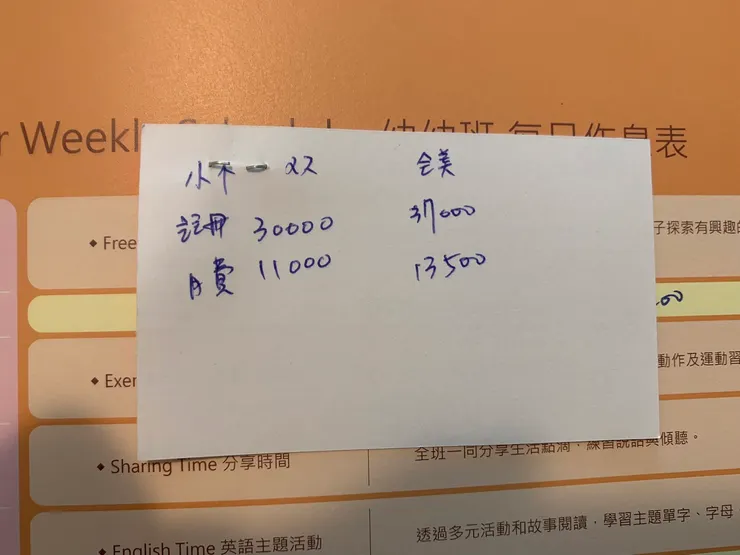 Weekly 幼幼班 每日作息表
小 双 全美
註冊 30000 37000
月費 11000 13500
Free
子探索有興趣的
Exer
動作及運動習
Sharing Time 分享時間
全班一同分享生活點滴，練習說話與傾聽。
English Time 英語主題活動
透過多元活動和故事閱讀，學習主題單字、字母